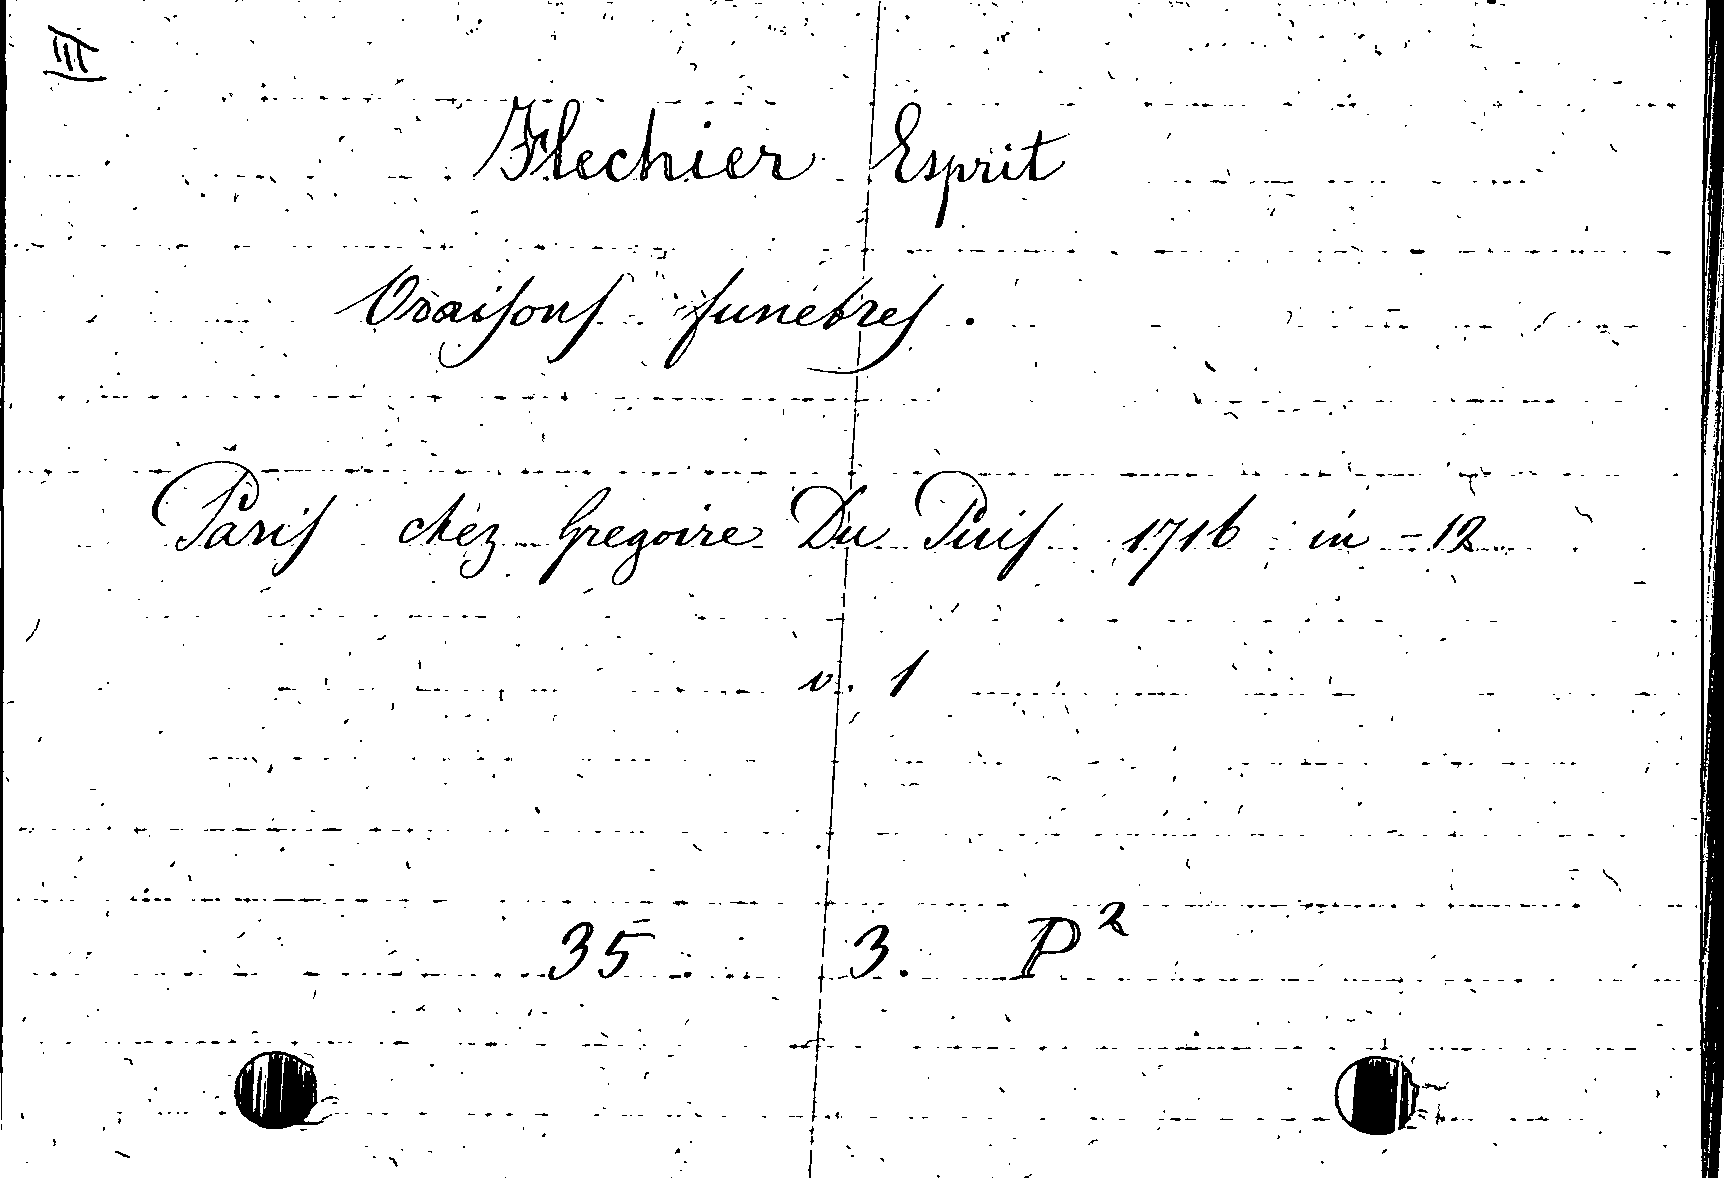 III
Flechier Esprit
Oraisons funebres.
Paris chez Gregoire Du Puis 1716 in-12
v. 1
35 3. P²